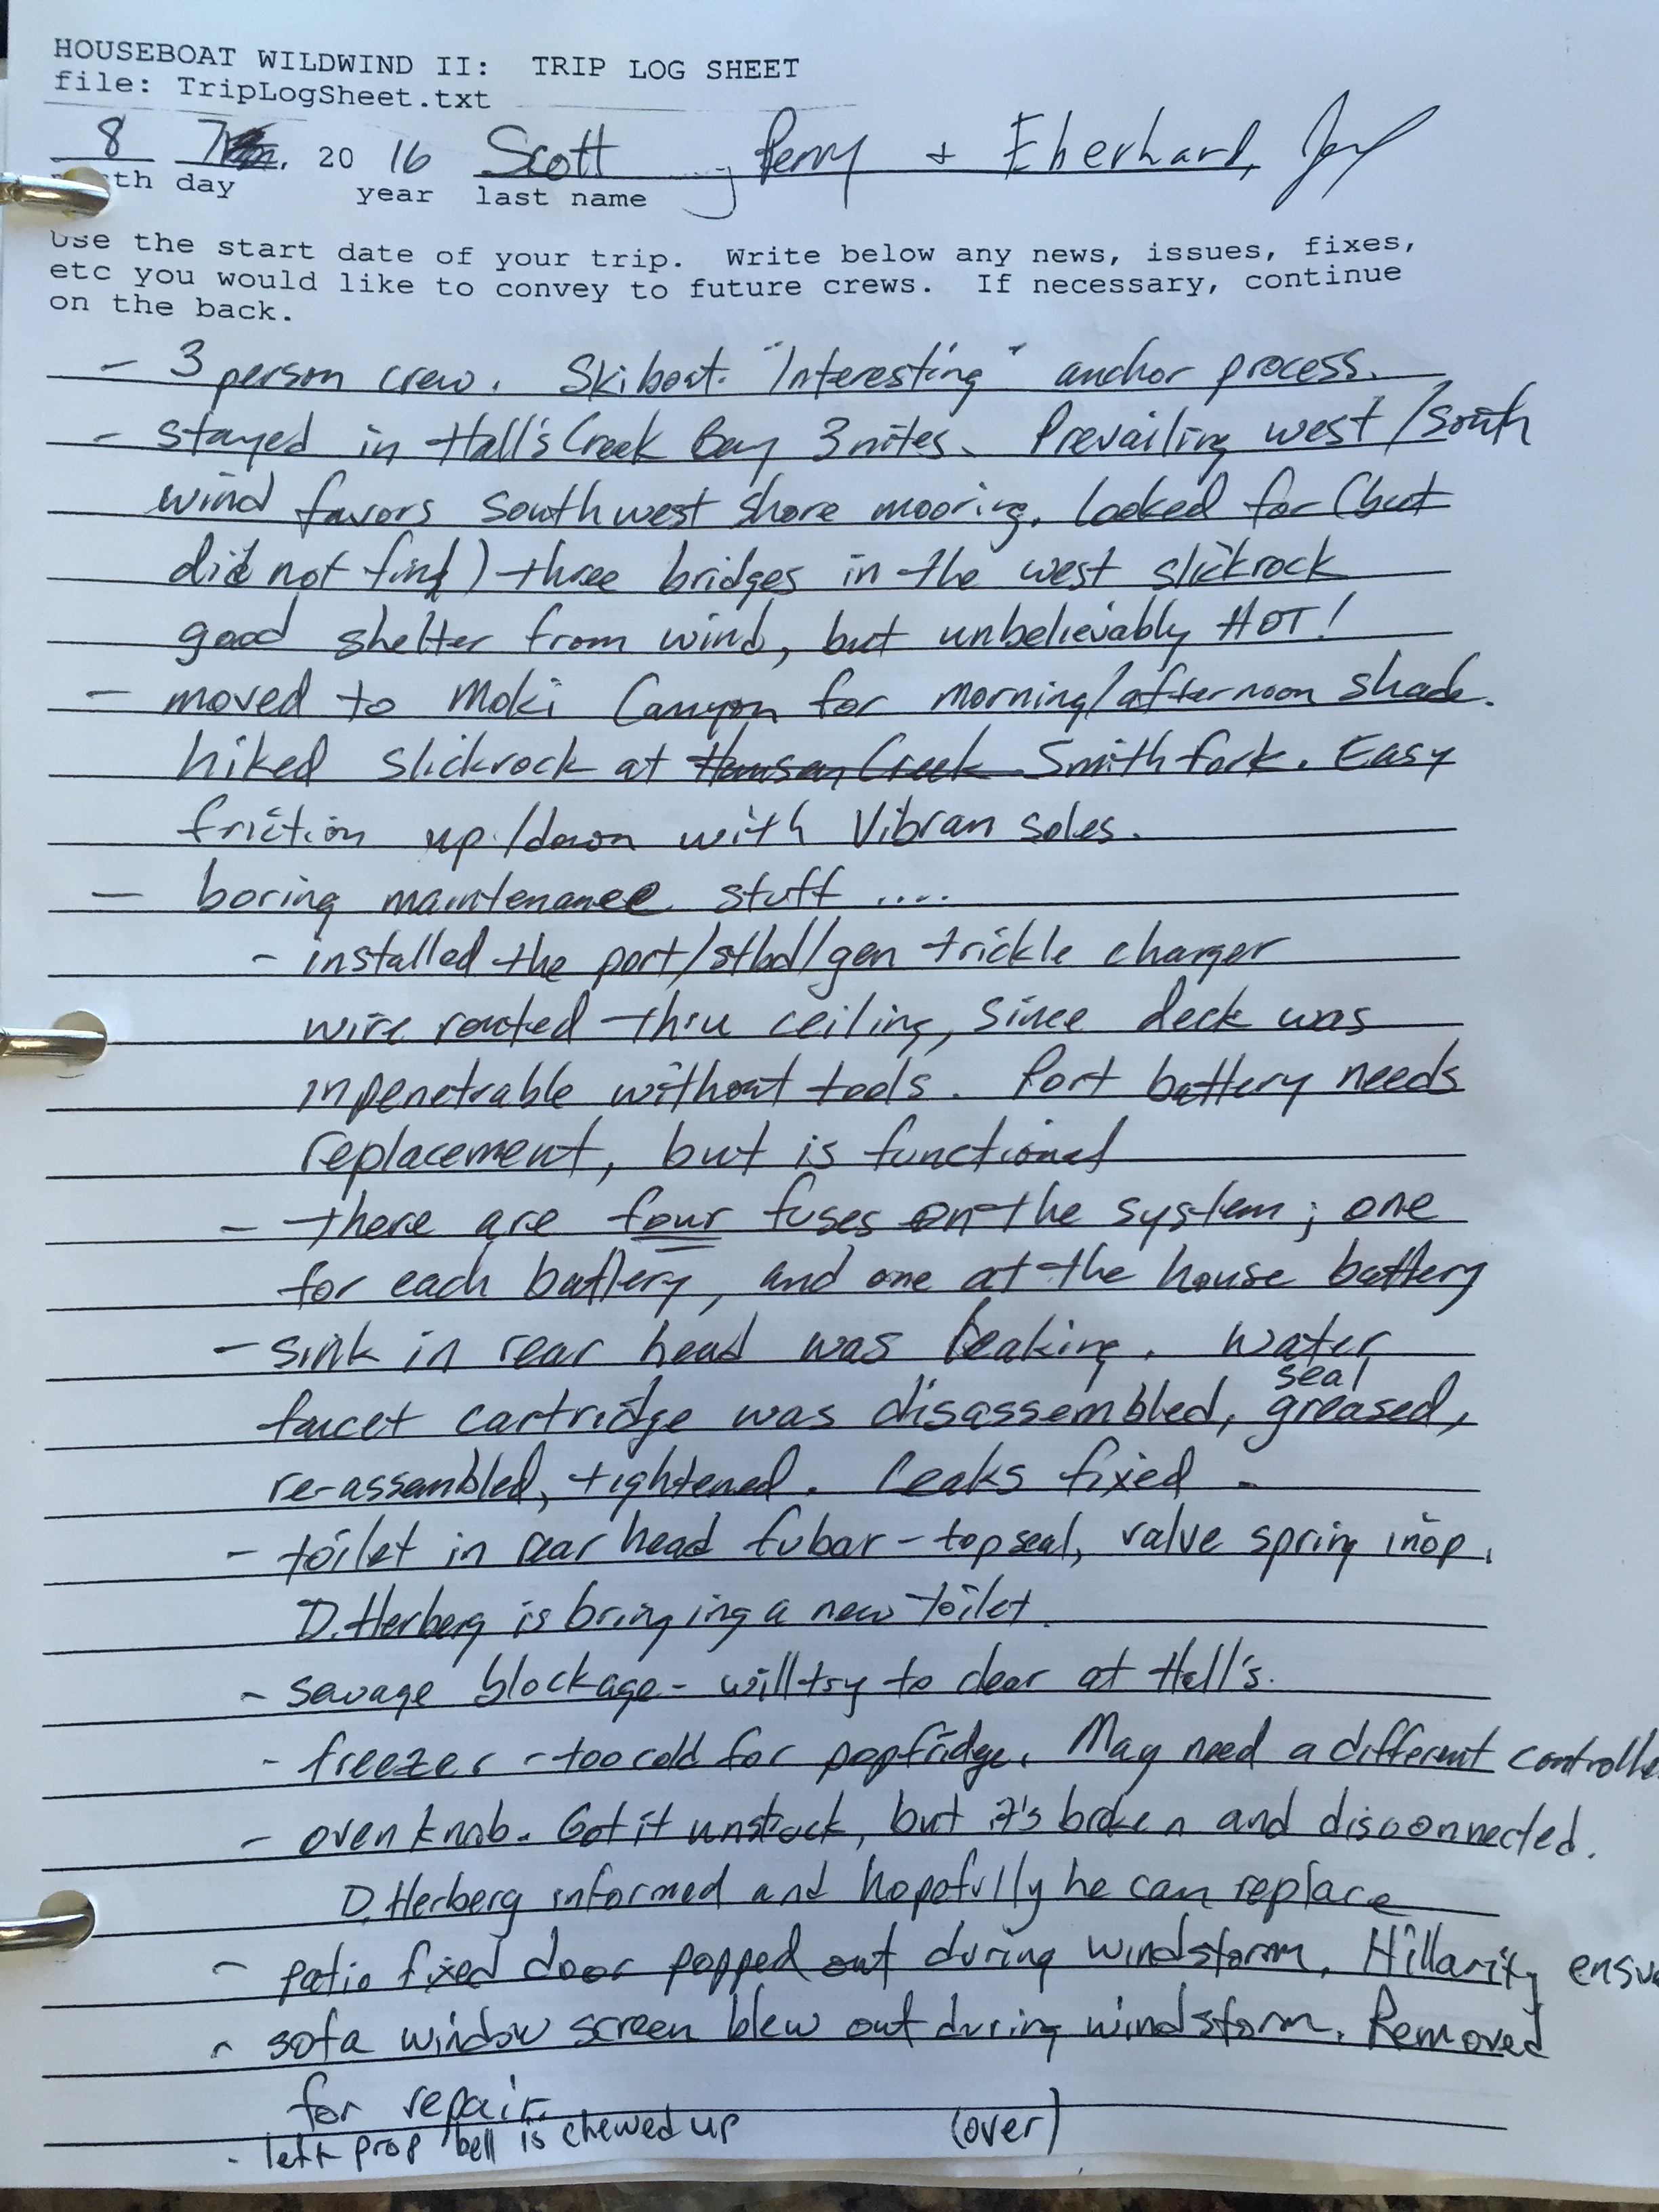 HOUSEBOAT WILDWIND II: TRIP LOG SHEET
file: TripLogSheet.txt
8 7 20 16 Scott, Perry + Eberhard,
th day year last name
Use the start date of your trip. Write below any news, issues, fixes,
etc you would like to convey to future crews. If necessary, continue
on the back.
- 3 person crew. Ski boat. "Interesting" anchor process.
- stayed in Hall's Creek Bay 3 nites. Prevailing west/south
wind favors southwest shore mooring. Looked for (but
did not find) three bridges in the west slickrock
good shelter from wind, but unbelievably HOT!
- moved to Moki Canyon for morning/afternoon shade.
hiked slickrock at Hansen Creek Smith fork. Easy
friction up/down with Vibran soles.
- boring maintenance stuff ....
- installed the port/stbd/gen trickle charger
wire routed thru ceiling, since deck was
inpenetrable without tools. Port battery needs
replacement, but is functional
- there are four fuses on the system; one
for each battery, and one at the house battery
- sink in rear head was leaking. Water
seal
faucet cartridge was disassembled, greased,
re-assembled, tightened. Leaks fixed -
- toilet in rear head fubar - top seal, valve spring inop.
D. Herberg is bringing a new toilet.
- sewage blockage - will try to clear at Hall's.
- freezer - too cold for pop fridge. May need a different controlle
- oven knob. Got it unstuck, but it's broken and disconnected.
D. Herberg informed and hopefully he can replace
- patio fixed door popped out during windstorm. Hillarity ensu
- sofa window screen blew out during windstorm. Removed
for repair.
- left prop bell is chewed up (over)